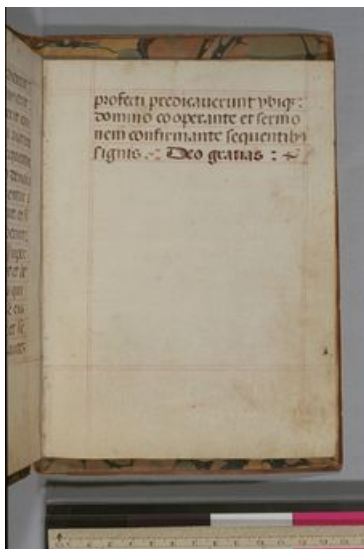 profecti predicauerunt vbiqʒ:
domino cooperante et sermo
nem confirmante sequentibꝯ
signis .~: Deo gratias : +